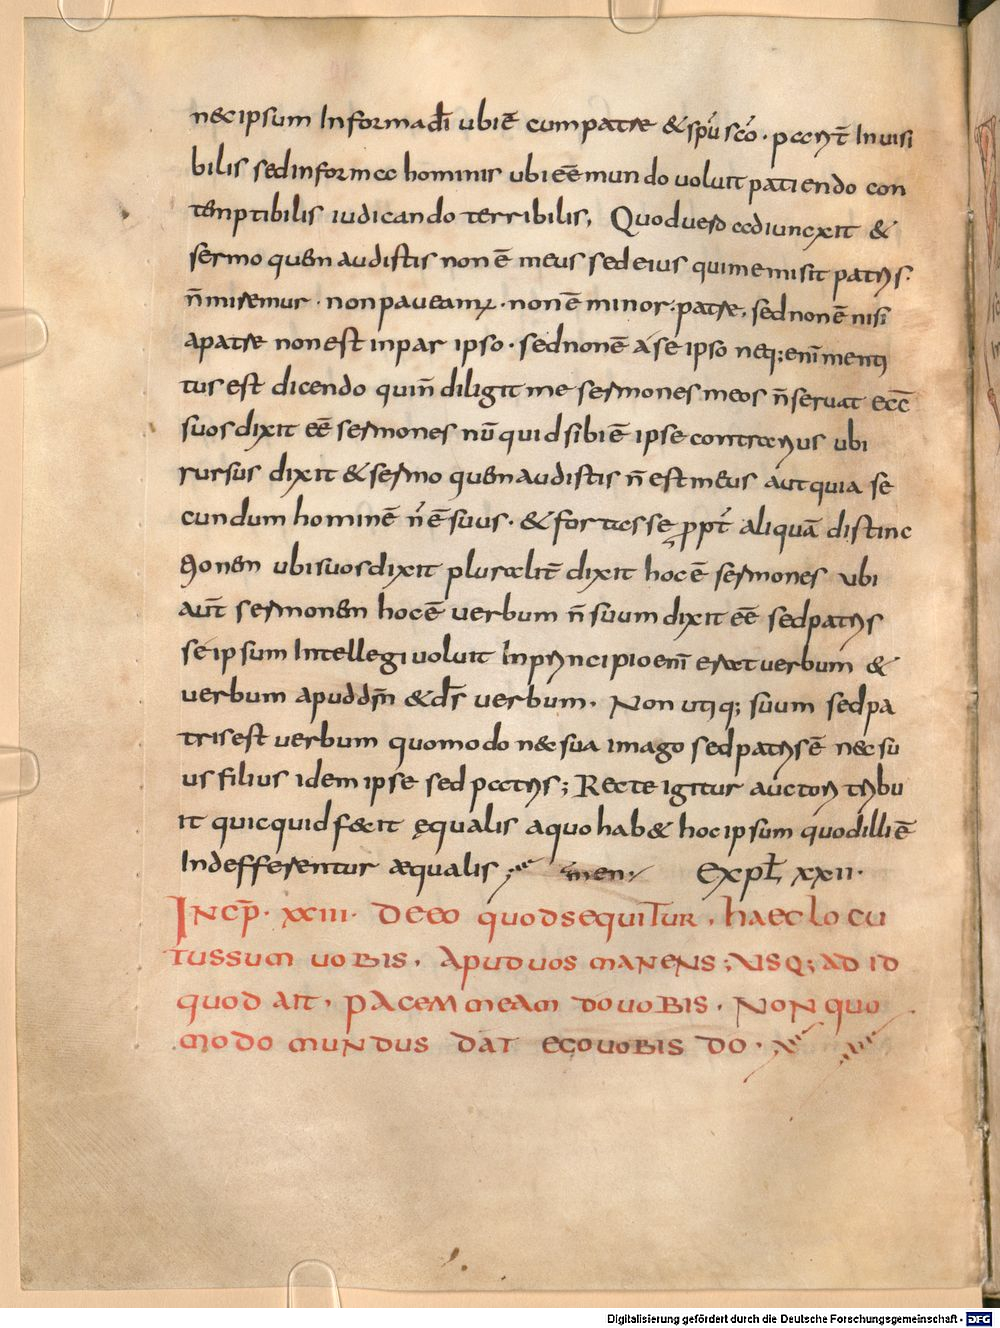 nec ipsum Informadī ubi ē cum patre & sp̄u sc̄o · pat̄ Inuisi
bilis sed in forma hominis ubi eē mundo uoluit patiendo con
temptibilis iudicando terribilis, Quod uero adiuncxit &
sermo quem audistis non ē meus sed eius qui me misit patris.
n̄ miremur · non paueamus · non ē minor · patre, sed non ē nisi
a patre non est inpar ipso · sed non ē a se ipso neq; enī menti
tus est dicendo qui n̄ diligit me sermones meos n̄ seruat ecc̄
suos dixit eē sermones nū quid sibi ē ipse contrarius ubi
rursus dixit & sermo quem audistis n̄ est meus aut quia se
cundum hominē n̄ ē suus · & fortasse ꝓpt̄ aliquā distinc
tionem ubi suos dixit pluralit̄ dixit hoc ē sermones ubi
aut̄ sermonem hoc ē uerbum n̄ suum dixit eē sed patris
se ipsum Intellegi uoluit In principio enī erat uerbum &
uerbum apud dm̄ & ds̄ uerbum. Non utiq; suum sed pa
tris est uerbum quomodo nec sua imago sed patris ē nec su
us filius idem ipse sed patris; Recte igitur auctori tribu
it quicquid fecit ęqualis a quo hab& hoc ipsum quod illi ē
Indefferentur æqualis ; amen · Expl̄, xxii ·
INCP̄ · xxiii · DE EO quod sequitur, haec locu
tus sum uobis, Apud uos manens; usq; ad id
quod ait, pacem meam do uobis. Non quo
modo mundus dat ego uobis do ·
Digitalisierung gefördert durch die Deutsche Forschungsgemeinschaft - DFG